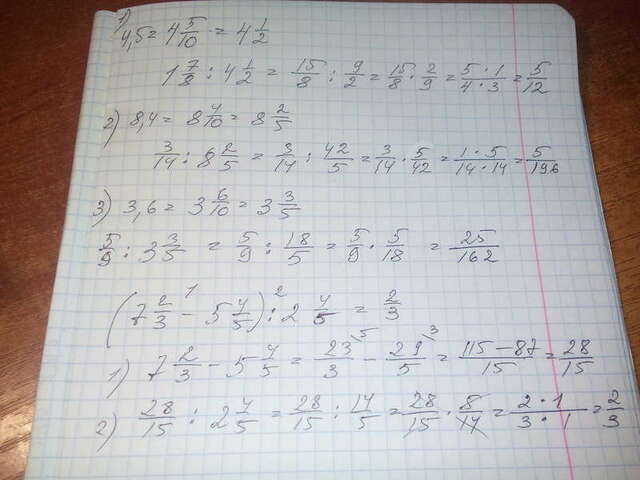 1) 4,5 = 4 5/10 = 4 1/2
1 7/8 : 4 1/2 = 15/8 : 9/2 = 15/8 · 2/9 = 5·1/4·3 = 5/12
2) 8,4 = 8 4/10 = 8 2/5
3/14 : 8 2/5 = 3/14 : 42/5 = 3/14 · 5/42 = 1·5/14·14 = 5/196
3) 3,6 = 3 6/10 = 3 3/5
5/9 : 3 3/5 = 5/9 : 18/5 = 5/9 · 5/18 = 25/162
(7 2/3 -¹ 5 4/5) :² 2 4/5 = 2/3
1) 7 2/3 - 5 4/5 = 23/3 ⁵ - 29/5 ³ = 115-87/15 = 28/15
2) 28/15 : 2 4/5 = 28/15 : 14/5 = 28/15 · 5/14 = 2·1/3·1 = 2/3